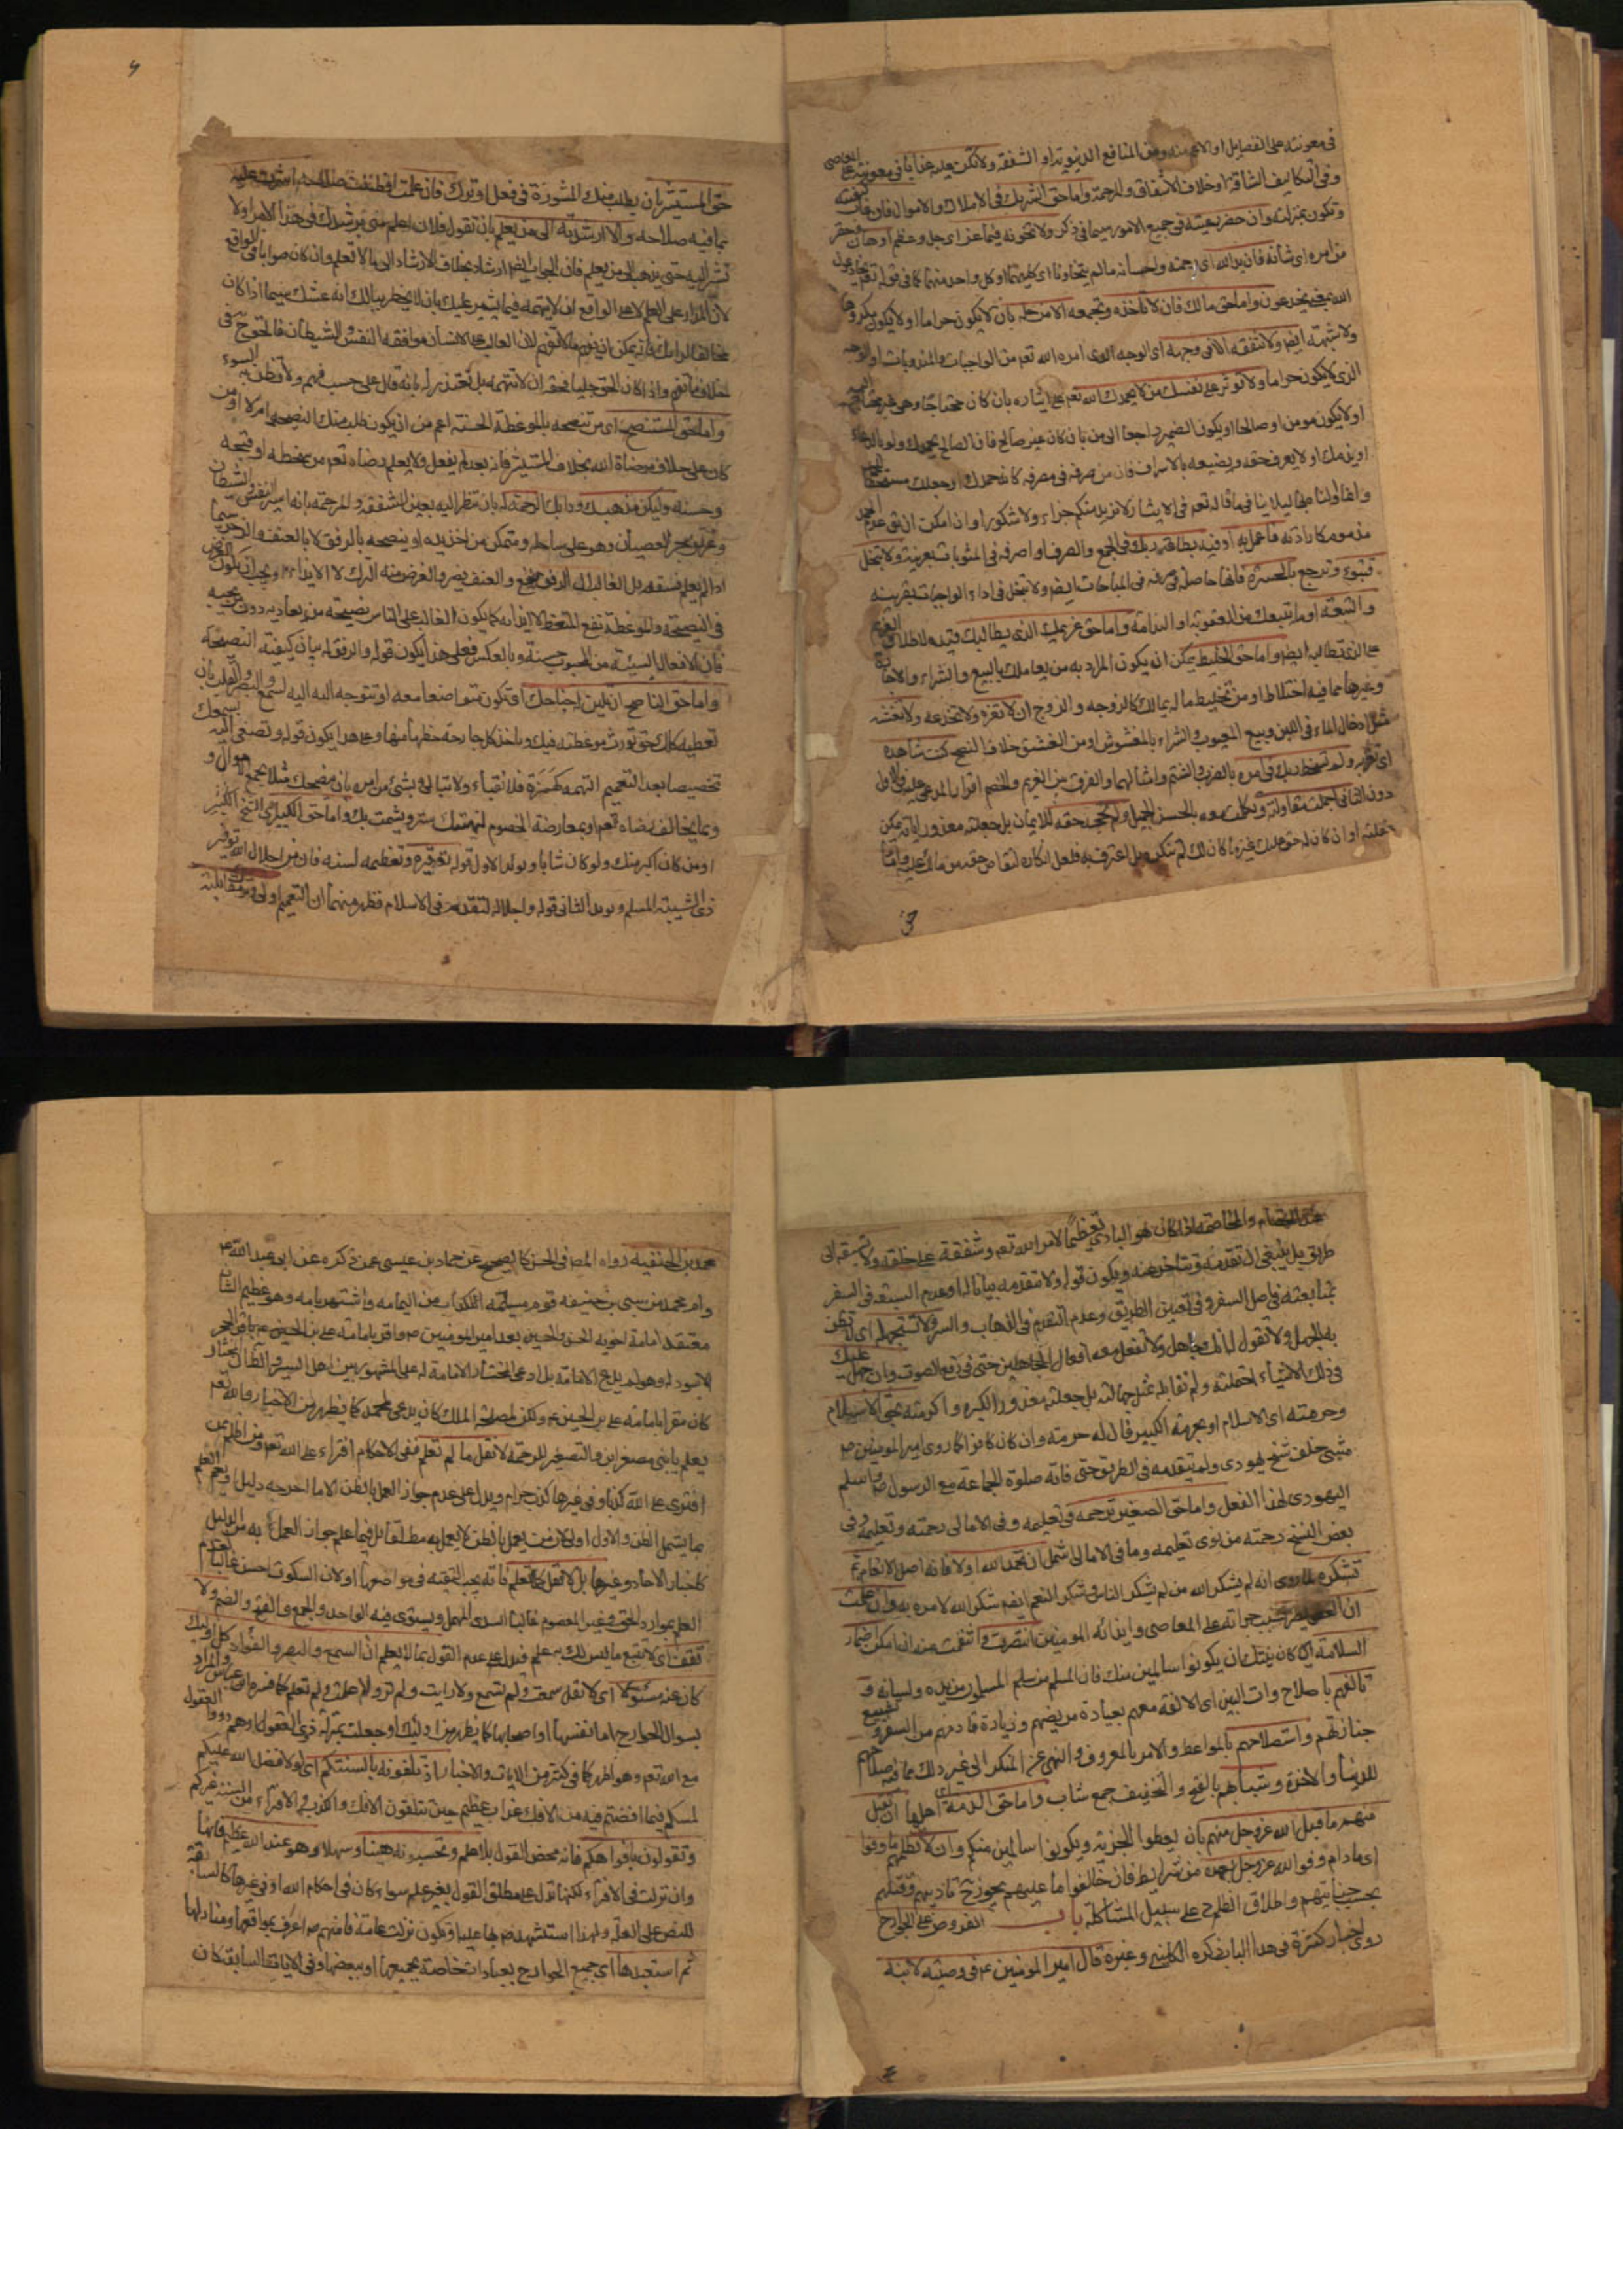 في معونته على الفضايل او الاعم منه ومن المنافع الدنيوية او الشفقة ولا تكن عليه عذابا في معونته على المعاصي
وفي التكاليف الشاقة او خلاف الاشفاق والرحمة واما حق الشريك في الاملاك والاموال فان غاب كفيته
وتكون بمنزلته وان حضر رعيته في جميع الامور سيما في ذكر ولا تخونه فيما عز اي جل وعظم او هان وحقر
من امره اي شأنه فان يد الله اي رحمته واحسانه ما لم يتخاونا اي كليهما او كل واحد منهما كما في قوله تعم يخادعون
الله فيخدعون واما حق مالك فان لا تاخذه وتجمعه الا من حله بان لا يكون حراما او لا يكون مكروها
ولا شبهة ايضا ولا تنفقه الا في وجهه اي الوجه الذي امره الله تعم من الواجبات والمندوبات او الوجه
الذي لا يكون حراما ولا تؤثر على نفسك من لا يحمدك الله تعم على ايثاره بان كان محتاجا وهو غير محتاج اليه
او لا يكون مومن او صالحا او يكون الضمير راجعا الى من بان كان غير صالح فان الصالح يحمدك ولو بالدعاء
او يذمك او لا يعرف حقه ويضيعه بالاسراف فان من صرفه في مصرفه كانه حمدك او جعلك مستحقا للحمد
وانما اولنا بها ليلا ينافي ما قاله تعم في الايثار لا نريد منكم جزاء ولا شكورا وان امكن ان
مذموما كارادته فاعمل به او فيه بطاعة ربك في الجمع والصرف او اصرفه في المثوبات بقرينة ولا تبخل
فتبوء وترجع بالحسرة فانها حاصلة في صرفه في المباحات ايضا ولا تبخل في اداء الواجبات بقرينة
والتبعة او ما يتبعك من العقوبة او الندامة واما حق غريمك الذي يطالبك قيده لاطلاق الغريم
على الذي تطالبه ايضا واما حق الخليط يمكن ان يكون المراد به من يعاملك بالبيع والشراء والاجارة
وغيرها مما فيه اختلاط او من تخليط ماله بمالك كالزوجة والزوج ان لا تغره ولا تخدعه ولا تغشه
مثل ادخال الماء في اللبن وبيع المعيوب والشراء بالمغشوش او من الغش خلاف النصح كنت شاهده
اي تقر به ولم تسخط ربك في امره بالضرب والشتم وامثالهما والفرق بين الغريم والخصم اقرار المدعى عليه في الاول
دون الثاني اجملت مقاولته وتكلمت معه بالحسن الجميل ولم تجحد حقه للايمان بل جعلته معذورا بانه يمكن
غلبته او ان كان له حق عليك غيره كان لك لم تنكره بل اعترف به فلعل انكاره لتقاص حقه من مالك عليه واما
حق المستشير بان يطلب منك المشورة في فعل او ترك فان علمت او ظننت صلاحه اشرت عليه
بما فيه صلاحه والا ارشدته الى من يعلم بان تقول فلان اعلم مني يرشدك في هذا الامر او لا
تشر اليه حتى يذهب الى من يعلم فان الجواب ايضا ارشاد بخلاف الارشاد الى ما لا تعلم وان كان صوابا في الواقع
لان المدار على العلم لا على الواقع ان لا يتهمه فيما يشير عليك بان لا يخطر ببالك انه غشك سيما اذا كان
مخالفا لرايك فانه يمكن ان يفهم ما لا تفهم لان الغالب على الانسان موافقه النفس والشيطان فالحق في
خلاف ما تفهم واذا كان الحق جليا فحقه ان لا تتهمه بل تعتذر له بانه قال على حسب فهمه ولا تظن به السوء
واما حق المستنصح اي من تنصحه بالموعظة الحسنة اعم من ان يكون طلب منك النصيحة ام لا او من
كان على خلاف مرضاة الله بخلاف المستشير فانه بعد لم يفعل ولا يعلم رضاه تعم من سخطه او قبحه
وحسنه وليكن مذهبك ودابك الرحمة له بان تنظر اليه بعين الشفقة والمرحمة بانه اسير النفس والشيطان
وغريق بحر العصيان وهو على ساحله ومتمكن من اخذ يده او ينصحه بالرفق لا بالعنف والخرق سيما
اذا لم يعلم فسقه بل الغالب ان الرفق ينفع والعنف يضر والغرض منه الترك لا الايذاء ويجب ان يكون الغرض
في النصيحة والموعظة نفع المتعظ لا ايذائه كما يكون الغالب على الناس نصيحة من يعاديه دون من يحبه
فان الافعال السيئة من المحبوب حسنة وبالعكس فعلى هذا يكون قوله والرفق له بيان كيفية النصيحة
واما حق الناصح ان تلين له جناحك او تكون متواضعا معه او تتوجه اليه لسمع والبصر والقلب بان
تعطيه كلك حتى تورث موعظته فيك وياخذ كل جارحة حظها منها وعلى هذا يكون قوله وتصغى اليه بسمعك
تخصيصا بعد التعميم التهمة كهمزة فلا تعبأ ولا تبالي بشئ من امره بان نصحك مثلا بجمع الاموال و
وبما يخالف رضاه تعم او بمعارضة الخصوم ليهتك سترك ويشمت بك واما حق الكبير اي الشيخ الكبير
او من كان اكبر منك ولو كان شابا ويؤيد الاول قوله توقيره وتعظيمه لسنه فان من اجلال الله توقير
ذي الشيبة المسلم ويؤيد الثاني قوله واجلاله لتقدمه في الاسلام فظهر منهما ان التعميم اولى وترك مقابلته
عند الخصام والمخاصمة اذا كان هو البادي تعظيما لامر الله تعم وشفقة على خلقه ولا تسبقه الى
طريق بل ينبغي ان تقدمه وتتاخر عنه ويكون قوله ولا تتقدمه بيانا لها وعدم السبقة في السفر
بمتابعته في اصل السفر وفي تعيين الطريق وعدم التقدم في الذهاب والسير ولا تستجهله اي لا تظن
به الجهل ولا تقول له انك جاهل ولا تفعل معه افعال الجاهلين حتى في رفع الصوت وان جهل عليك
في ذلك الاشياء احتملته ولم تقابله بمثل جهالته بل جعلته معذورا لكبره واكرمته بحق الاسلام
وحرمته اي الاسلام او بحرمة الكبير فان له حرمته وان كان كافرا كما روى امير المومنين ص
مشى خلف شيخ يهودي ولم يتقدمه في الطريق حتى فاته صلوة الجماعة مع الرسول ص واسلم
اليهودي لهذا الفعل واما حق الصغير ترحمه في تعليمه وفي الامالي رحمته وتعليمه وفي
بعض النسخ رحمته من نوى تعليمه وما في الامالي اشمل ان تحمد الله اولا فانه اصل الانعام ثم
تشكره لما روى انه لم يشكر الله من لم يشكر الناس وشكر المنعم ايضا شكر الله لامره به وان علمت
ان العفو يضر بسبب جرأته على المعاصي وايذائه المومنين انتصرت وانتقمت منه ان امكن اضمار
السلامة اي كان نيتك ان يكونوا سالمين منك فان المسلم من سلم المسلمون من يده ولسانه و
تالفهم باصلاح ذات البين اي الالفة معهم بعيادة مريضهم وزيارة قادمهم من السفر وتشييع
جنازتهم واستصلاحهم بالمواعظ والامر بالمعروف والنهي عن المنكر الى غير ذلك مما فيه صلاحهم
للدنيا والاخرة وشبانهم بالفتح والتخفيف جمع شاب واما حق الذمة اي اهلها ان تقبل
منهم ما قبل الله عز وجل منهم بان يعطوا الجزية ويكونوا سالمين منكم وان لا تظلمهم ما وفوا
اي ما دام وفوا لله عز وجل بعهده من شرايط فان خالفوا ما عليهم يجوز تاديبهم وقتلهم
بحسب جنايتهم واطلاق الظلم على سبيل المشاكلة باب الفروض على الجوارح
روى اخبار كثيرة في هذا الباب ذكره الكليني وغيره قال امير المومنين ع في وصيته لابنه
محمد بن الحنفيه رواه المص في الحسن كالصحيح عن حماد بن عيسى عمن ذكره عن ابي عبد الله ع
وام محمد من سبي بني حنيفه قوم مسيلمه الكذاب من اليمامه واشتهر بامه وهو عظيم الشان
معتقد امامة اخويه الحسن والحسين بعد امير المومنين ص واقر بامامة علي بن الحسين ع باقرار الحجر
الاسود له وهو لم يدع الامامة بل ادعى المختار الامامة له على المشهور بين اهل السير والظ ان المختار
كان مقرا بامامة علي بن الحسين ع ولكن لمصلحة الملك كان يدعي لمحمد كما يظهر من الاخبار والله تعم
يعلم يا بني مصغر ابن والتصغير للرحمة لا تقل ما لم تعلم ففي الاحكام افتراء على الله تعم ومن اظلم ممن
افترى على الله كذبا وفي غيرها كذب حرام ويدل على عدم جواز العمل بالظن الا ما اخرجه دليل ويعم العلم
بما يشمل الظن والاول اولى لان من يعمل بالظن لا يعمل به مطلقا بل فيما علم جواز العمل به من الدليل
كاخبار الاحاد وغيرها بل لا تقل كلما تعلم فانه يجب التقية في مواضعها او لان السكوت احسن غالبا لعدم
العلم بموارد الحق وغير المعصوم غالبا السدى المهمل ويستوي فيه الواحد والجمع والفتح والضم ولا
تقف اي لا تتبع ما ليس لك به علم فيدل على عدم القول بما لا يعلم ان السمع والبصر والفؤاد كل اولئك
كان عنه مسئولا اي لا تقل سمعت ولم تسمع ولا رايت ولم تر ولا علمت ولم تعلم كما فسره ابن عباس والمراد
بسؤال الجوارح اما نفسها او اصحابها كما يظهر من اولئك او جعلت بمنزلة ذوي العقول
مع الله تعم وهو اظهر كما في كثير من الايات والاخبار اذ تلقونه بالسنتكم اي لولا فضل الله عليكم
لمسكم فيما افضتم فيه من الافك عذاب عظيم حين تتلقون الافك والكذب والافتراء من السنة غيركم
وتقولون بافواهكم فانه محض القول بلا علم وتحسبونه هينا وسهلا وهو عند الله عظيم فانها
وان نزلت في الافتراء لكنها تدل على مطلق القول بغير علم سواء كان في احكام الله او في غيرها كالسابقة
للنص على العلة ولهذا استشهد ص بها عليها وتكون نزلت عامة فانهم ص اعرف بمواقعها ومنازلها
ثم استعبدها اي جميع الجوارح بعبادات خاصة بجميعها او ببعضها وفي الايات السابقة كان